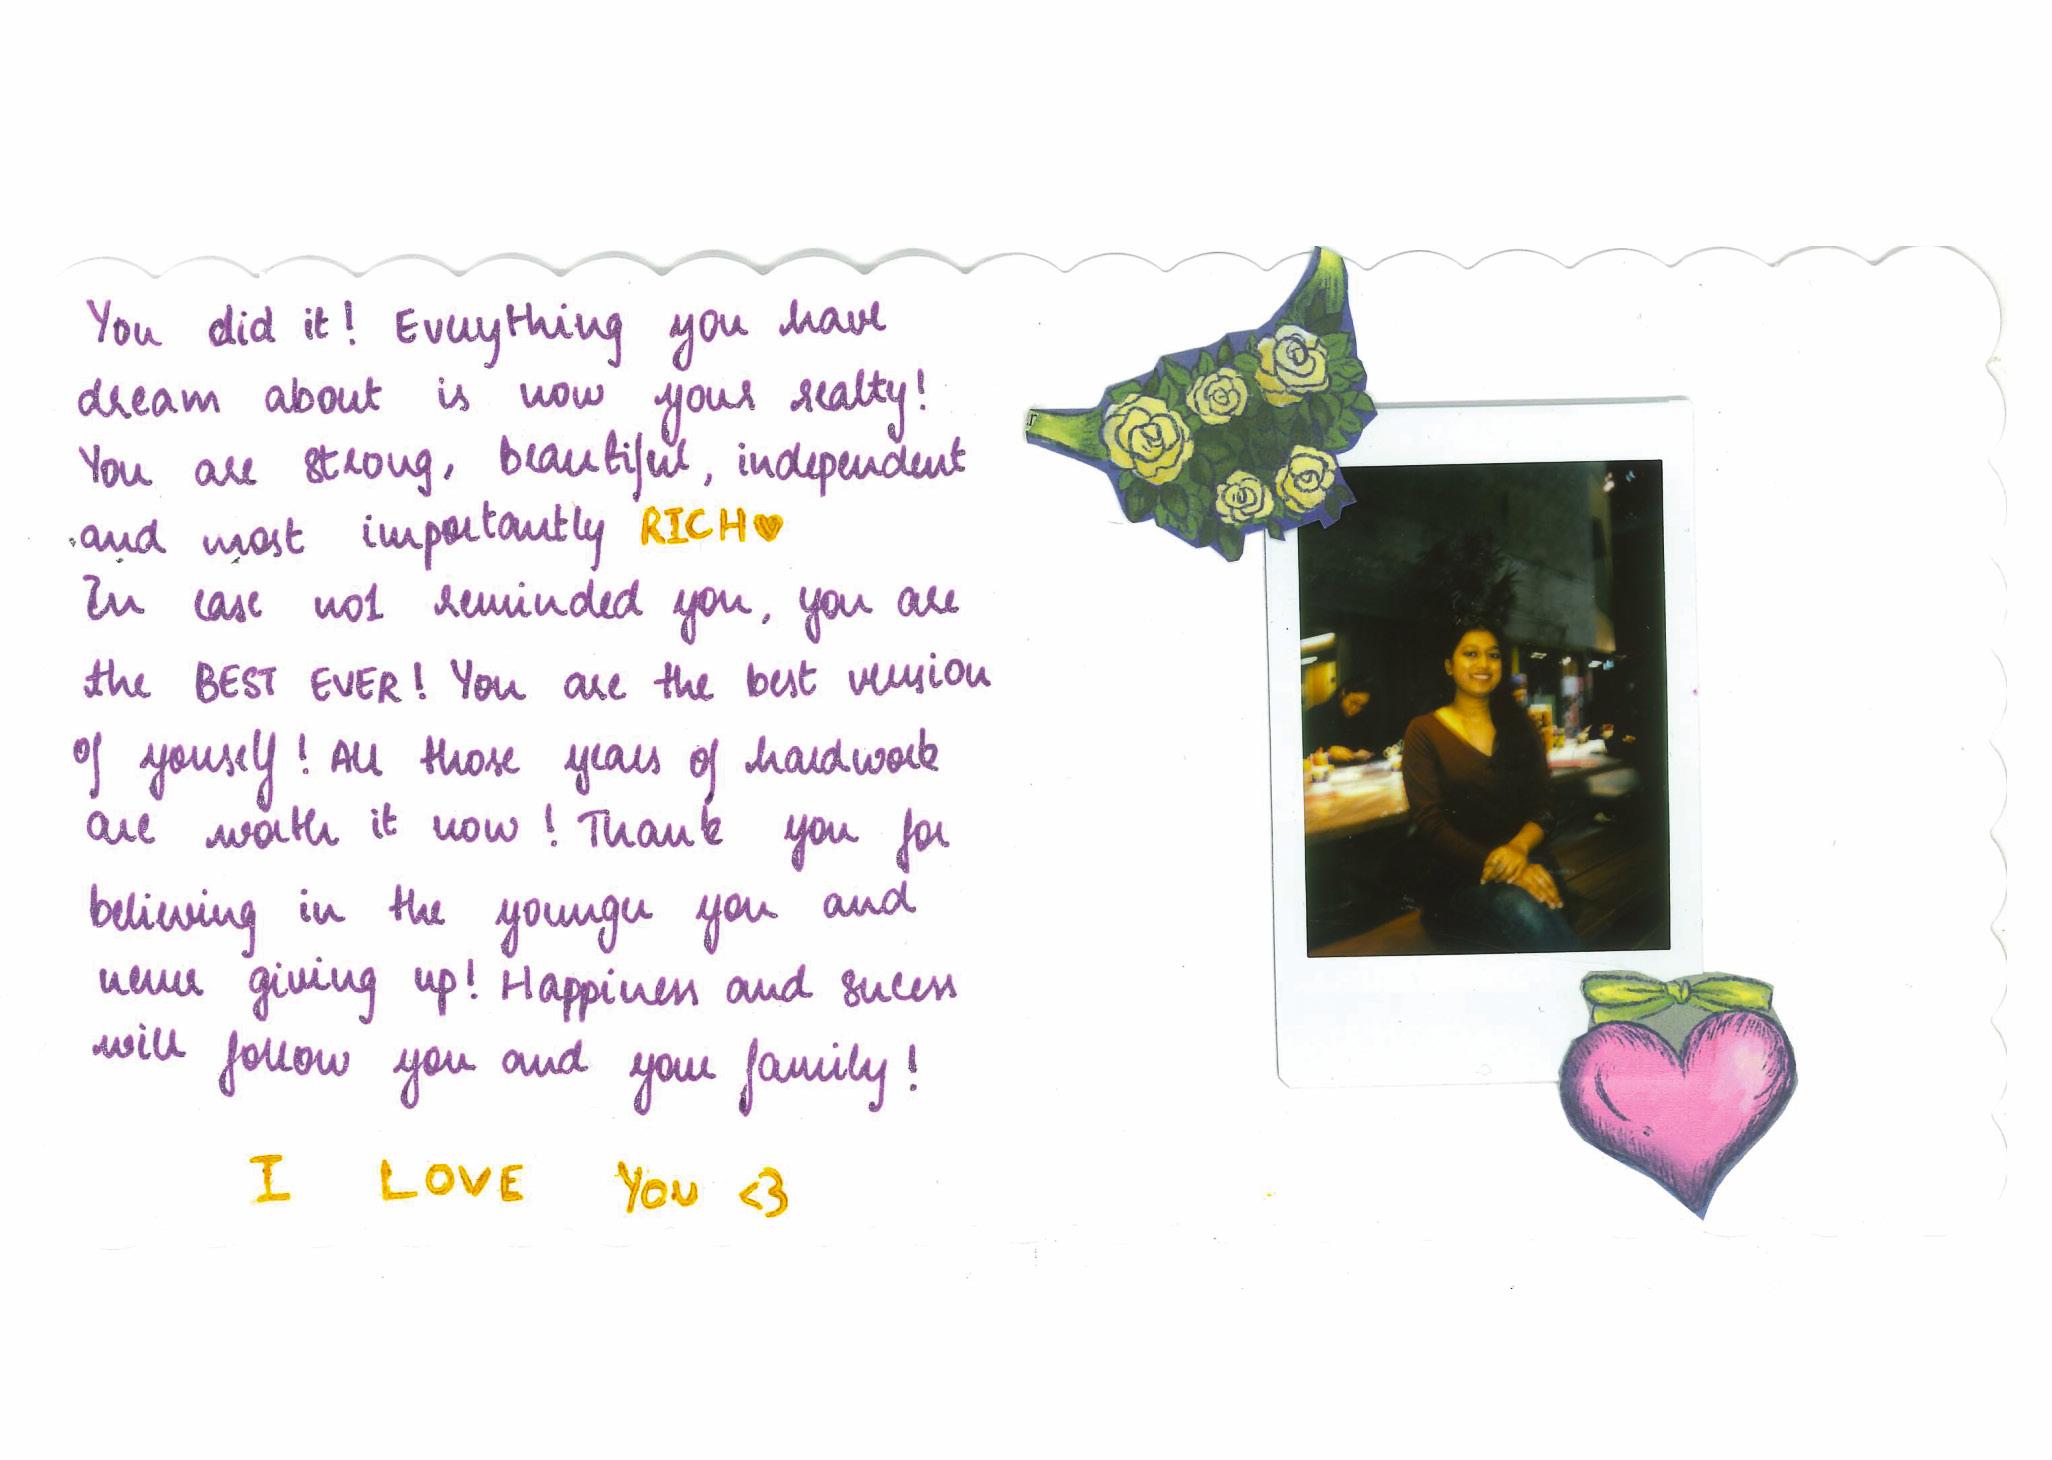 You did it! Everything you have
dream about is now your realty!
You are strong, beautiful, independent
and most importantly RICH♥
In case not reminded you, you are
the BEST EVER! You are the best version
of yourself! All those years of hardwork
are worth it now! Thank you for
believing in the younger you and
never giving up! Happiness and sucess
will follow you and your family!
I LOVE YOU <3